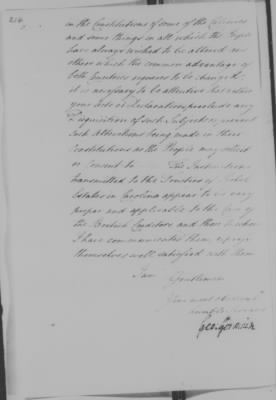 216
in the Constitutions of some of the Colonies
and some things in all which the People
have always wished to be altered, &
others which the common advantage of
both Countries requires to be changed;
it is necessary to be attentive that neither
your Acts or Declarations preclude any
Disquisition of such Subjects, or prevent
such Alterations being made in their
Constitutions as the People may solicit
or Consent to. The Instructions
transmitted to the Trustees of Rebel
Estates in Carolina appear to be very
proper and applicable to the Case of
the British Creditors and those to whom
I have communicated them, express
themselves well satisfied with them
I am Gentlemen
Your most obedient
humble Servant
Geo: Germain